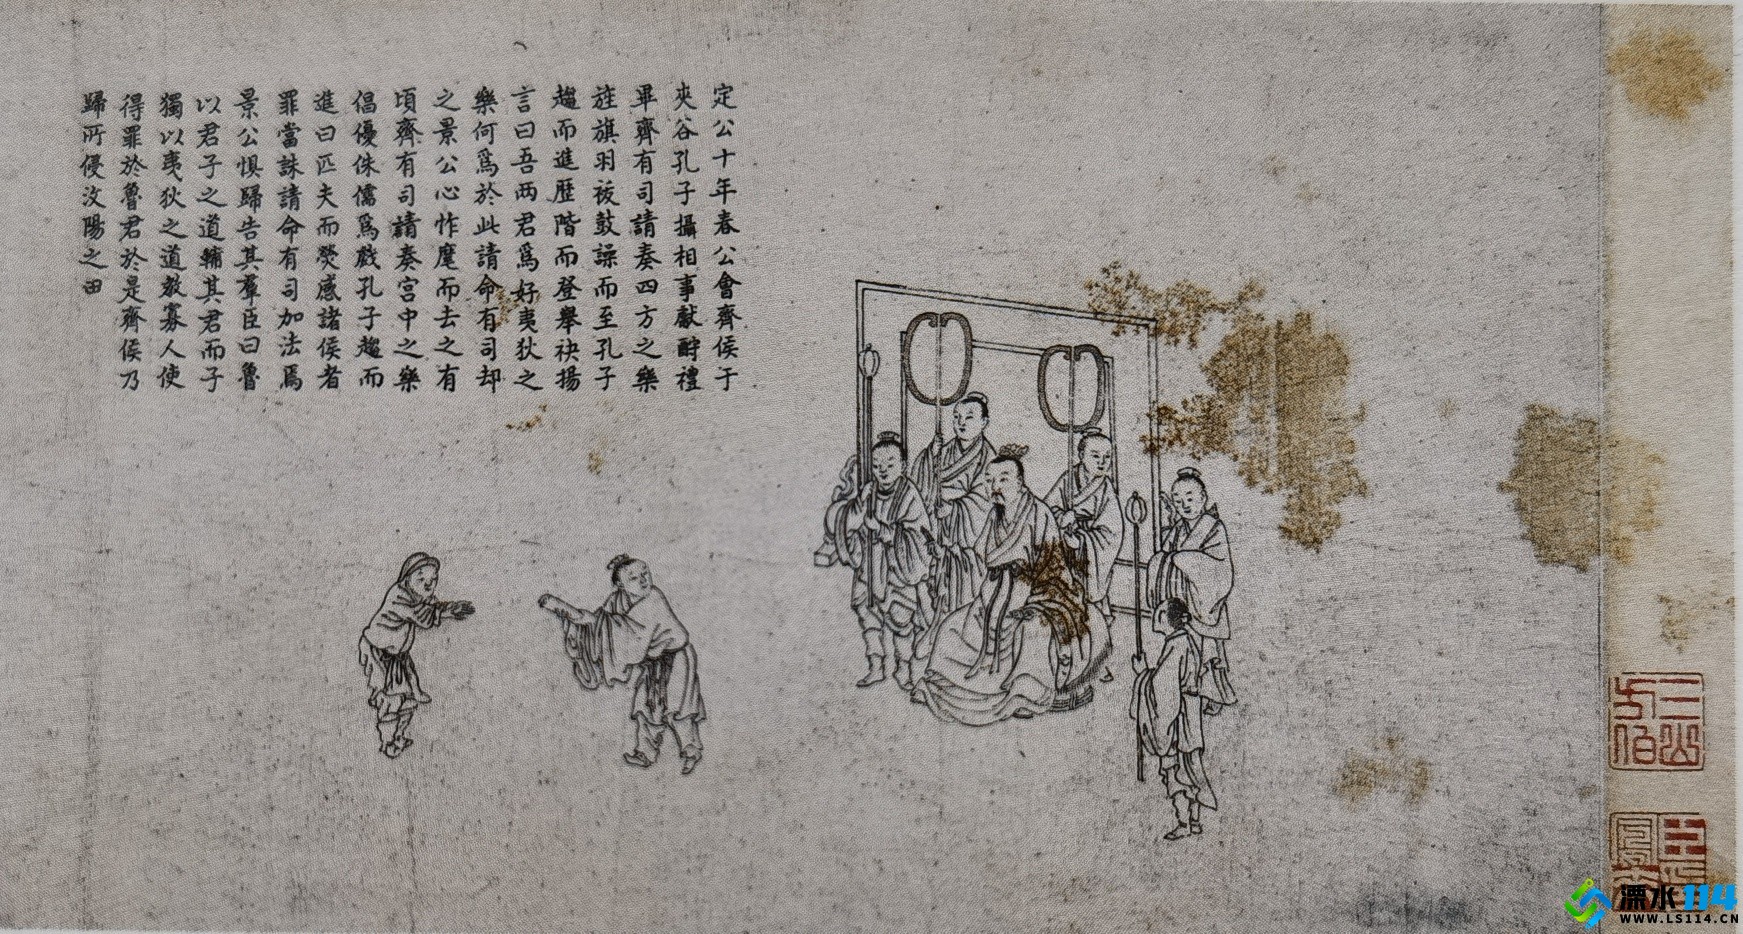 定公十年春公會齊侯于
夾谷孔子攝相事獻酬禮
畢齊有司請奏四方之樂
旌旗羽袚鼓譟而至孔子
趨而進歷階而登舉袂揚
言曰吾两君為好夷狄之
樂何爲於此請命有司却
之景公心怍麾而去之有
頃齊有司請奏宮中之樂
倡優侏儒爲戲孔子趨而
進曰匹夫而熒惑諸侯者
罪當誅請命有司加法焉
景公惧歸告其羣臣曰魯
以君子之道輔其君而子
獨以夷狄之道教寡人使
得罪於魯君於是齊侯乃
歸所侵汶陽之田
三山
方伯
溧水114
WWW.LS114.CN